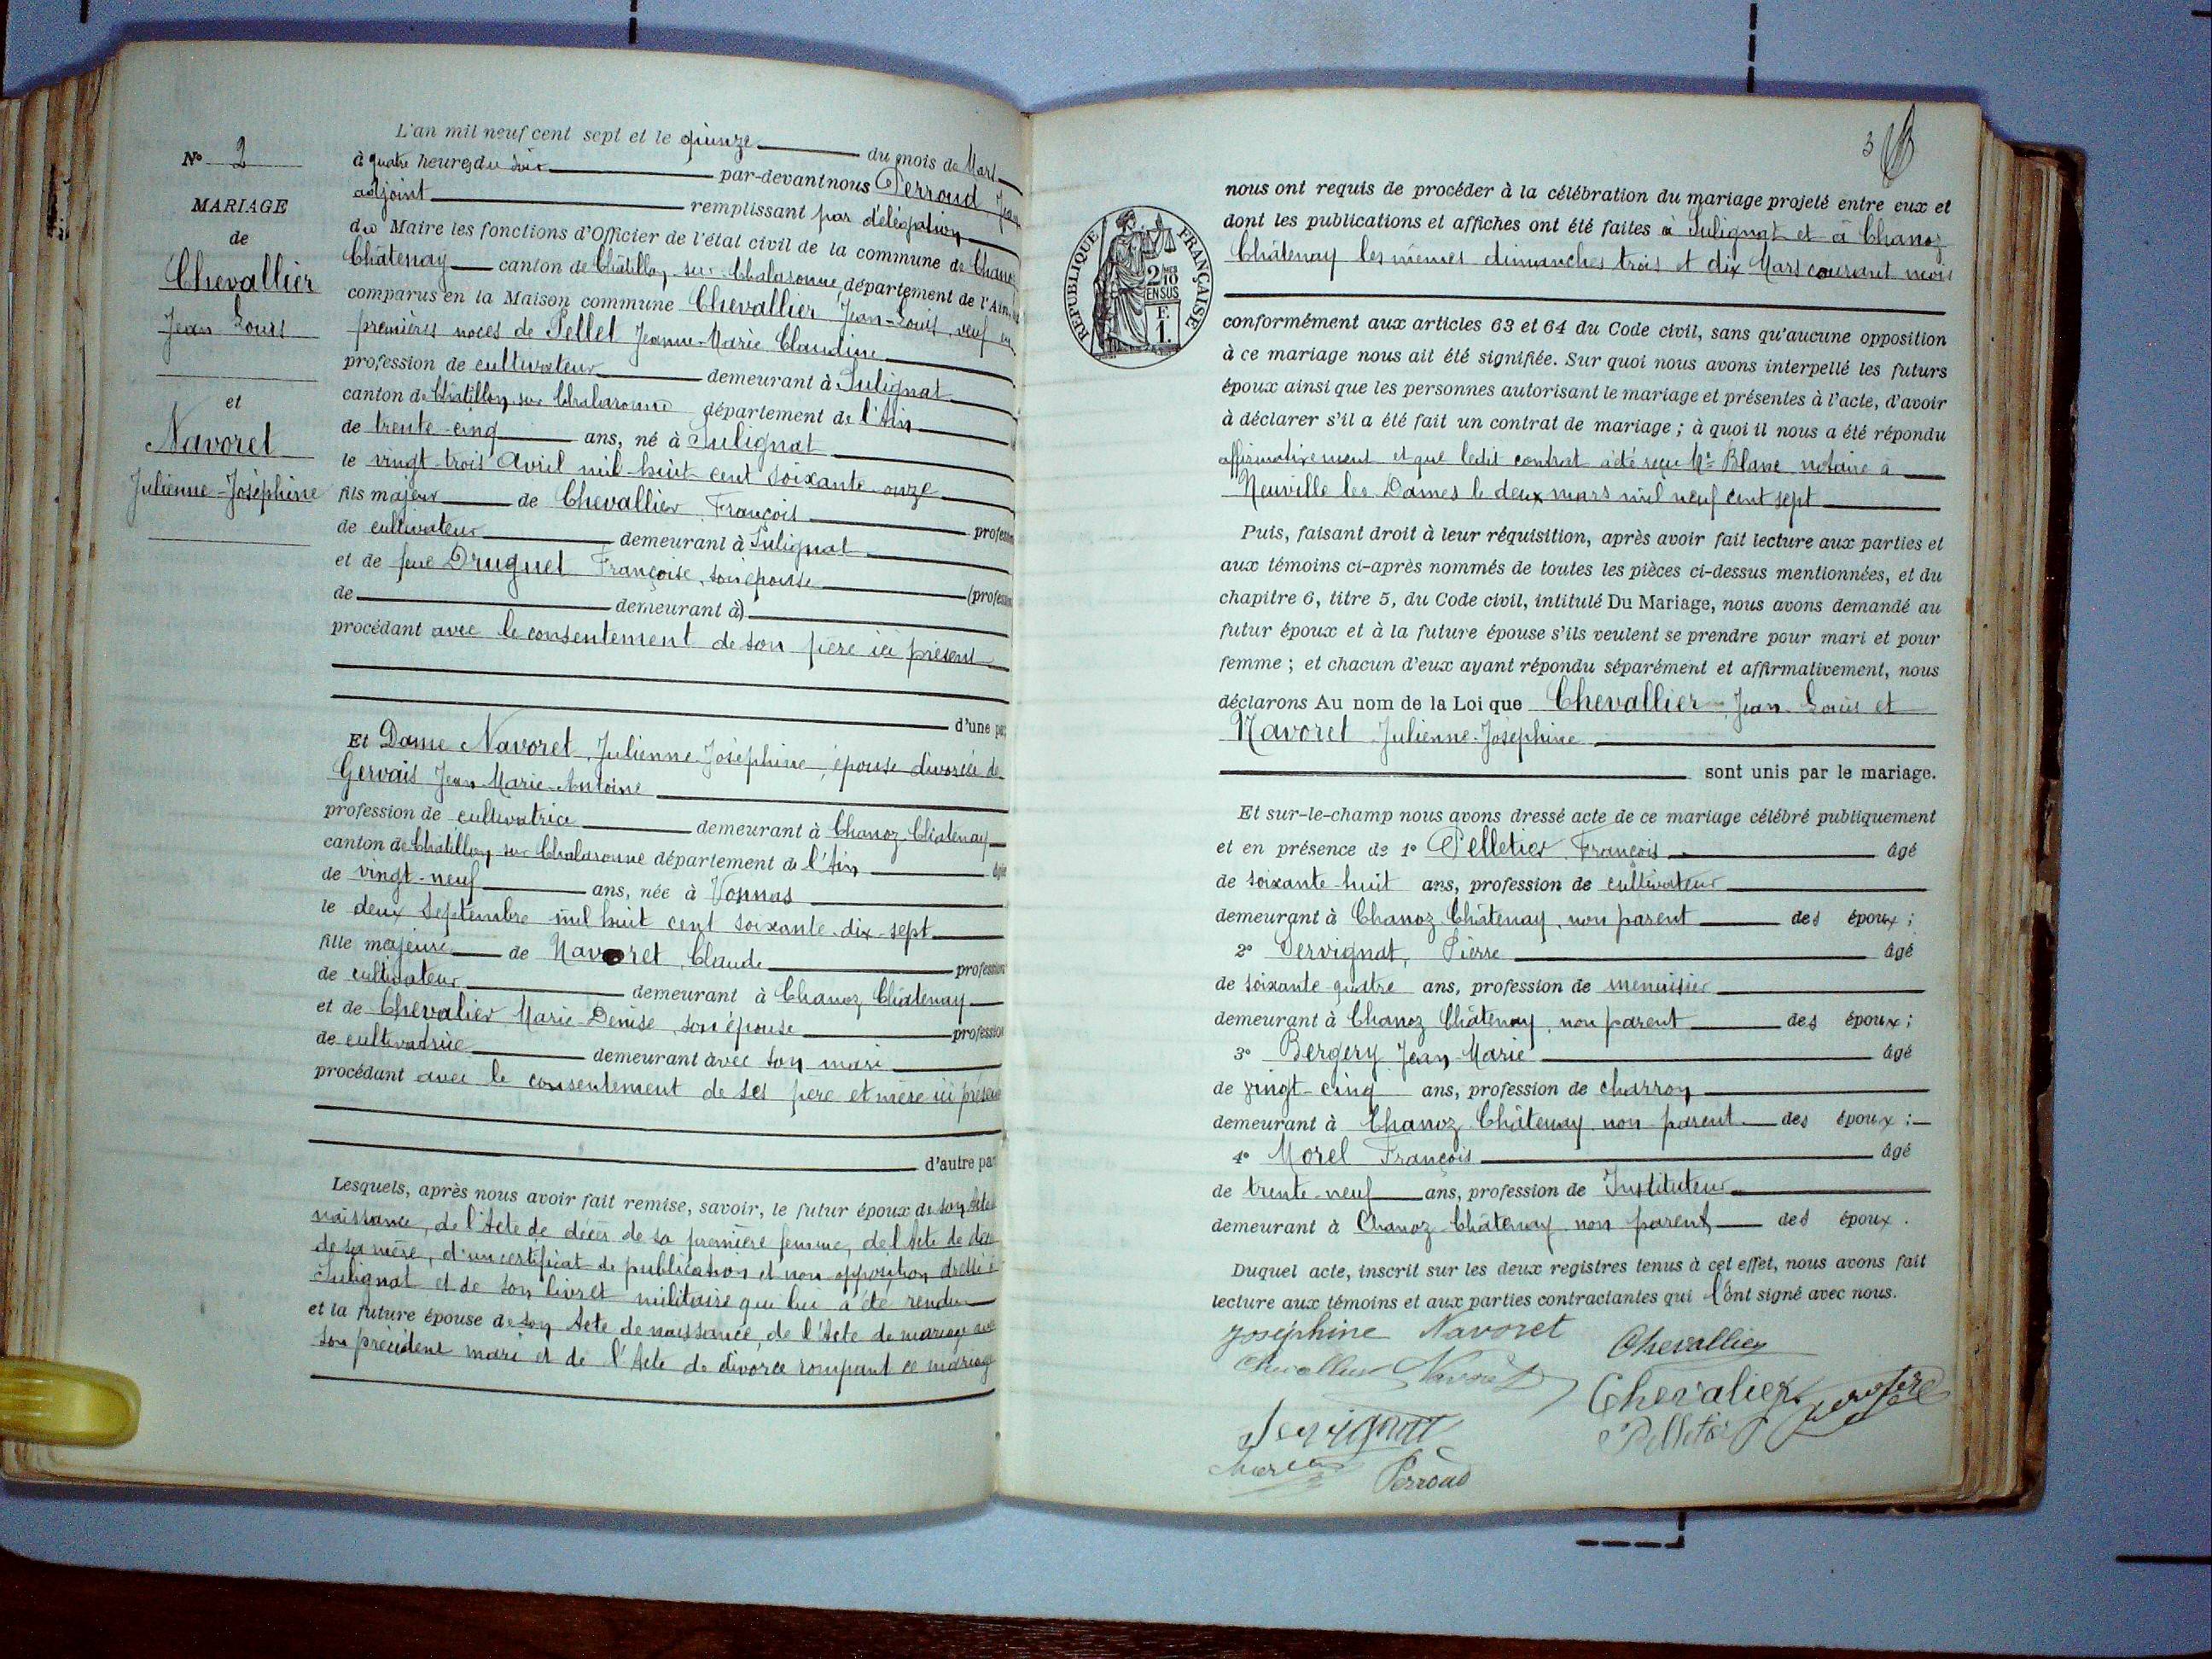 N° 2
MARIAGE
de
Chevallier
Jean Louis
et
Navoret
Julienne-Joséphine
L'an mil neuf cent sept et le quinze du mois de Mars
à quatre heures du soir par-devant nous Perroud Jean
adjoint remplissant par délégation
du Maire les fonctions d'Officier de l'état civil de la commune de Chanoz
Châtenay canton de Châtillon sur Chalaronne département de l'Ain,
comparus en la Maison commune Chevallier Jean-Louis, veuf en
premières noces de Pellet Jeanne-Marie Claudine
profession de cultivateur demeurant à Sulignat
canton de Châtillon sur Chalaronne département de l'Ain
de trente-cinq ans, né à Sulignat
le vingt-trois Avril mil huit cent soixante-onze
fils majeur de Chevallier François profession
de cultivateur demeurant à Sulignat
et de feue Druguet Françoise, son épouse (profession
de demeurant à)
procédant avec le consentement de son père ici présent
d'une par
Et Dame Navoret, Julienne-Joséphine, épouse divorcée de
Gervais Jean-Marie-Antoine
profession de cultivatrice demeurant à Chanoz Châtenay
canton de Châtillon sur Chalaronne département de l'Ain âgée
de vingt-neuf ans, née à Vonnas
le deux Septembre mil huit cent soixante-dix-sept
fille majeure de Navoret, Claude profession
de cultivateur demeurant à Chanoz Châtenay
et de Chevalier Marie-Denise, son épouse profession
de cultivatrice demeurant avec son mari
procédant avec le consentement de ses père et mère ici présents
d'autre par
Lesquels, après nous avoir fait remise, savoir, le futur époux de son Acte
naissance, de l'Acte de décès de sa première femme, de l'Acte de décès
de sa mère, d'un certificat de publication et non opposition dressé à
Sulignat et de son livret militaire qui lui a été rendu
et la future épouse de son Acte de naissance, de l'Acte de mariage avec
son précédent mari et de l'Acte de divorce rompant ce mariage
3
nous ont requis de procéder à la célébration du mariage projeté entre eux et
dont les publications et affiches ont été faites à Sulignat et à Chanoz
Châtenay les mêmes dimanches trois et dix Mars courant mois
RÉPUBLIQUE FRANÇAISE
2/10 EN SUS
F.
1.
conformément aux articles 63 et 64 du Code civil, sans qu'aucune opposition
à ce mariage nous ait été signifiée. Sur quoi nous avons interpellé les futurs
époux ainsi que les personnes autorisant le mariage et présentes à l'acte, d'avoir
à déclarer s'il a été fait un contrat de mariage ; à quoi il nous a été répondu
affirmativement et que ledit contrat a été reçu Me Blanc notaire à
Neuville les Dames le deux mars mil neuf cent sept
Puis, faisant droit à leur réquisition, après avoir fait lecture aux parties et
aux témoins ci-après nommés de toutes les pièces ci-dessus mentionnées, et du
chapitre 6, titre 5, du Code civil, intitulé Du Mariage, nous avons demandé au
futur époux et à la future épouse s'ils veulent se prendre pour mari et pour
femme ; et chacun d'eux ayant répondu séparément et affirmativement, nous
déclarons Au nom de la Loi que Chevallier Jean Louis et
Navoret Julienne-Joséphine
sont unis par le mariage.
Et sur-le-champ nous avons dressé acte de ce mariage célébré publiquement
et en présence de 1° Pelletier François âgé
de soixante-huit ans, profession de cultivateur
demeurant à Chanoz Châtenay, non parent des époux ;
2° Servignat, Pierre âgé
de soixante quatre ans, profession de menuisier
demeurant à Chanoz Châtenay, non parent des époux ;
3° Bergery Jean-Marie âgé
de vingt-cinq ans, profession de charron
demeurant à Chanoz Châtenay non parent des époux ;
4° Morel François âgé
de trente-neuf ans, profession de Instituteur
demeurant à Chanoz-Châtenay non parent des époux.
Duquel acte, inscrit sur les deux registres tenus à cet effet, nous avons fait
lecture aux témoins et aux parties contractantes qui l'ont signé avec nous.
Joséphine Navoret Chevallier
Chevallier Navoret Chevalier
Servignat Pelletier
Perroud